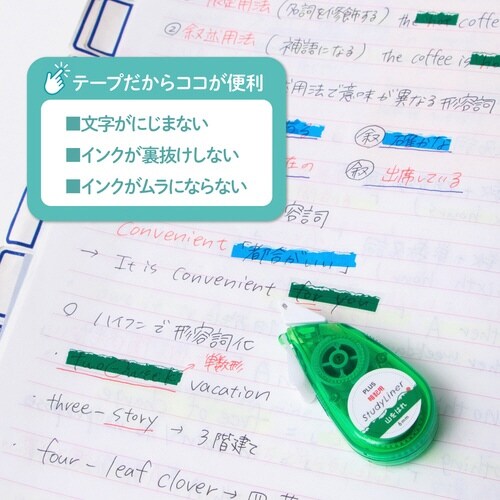 用法（名詞を修飾する） the hot coffe
② 叙述用法（補語になる） the coffee is
テープだからココが便利
■文字がにじまない
■インクが裏抜けしない
■インクがムラにならない
用法で意味が異なる形容詞
叙 確かな
在の
叙 出席している
容詞
Convenient 「都合がいい」
→ It is convenient for you
○ ハイフンで形容詞化
単数形
vacation
three-story → 3階建て
four-leaf clover → 四葉
PLUS
暗記用
StudyLiner
山をはれ
6mm